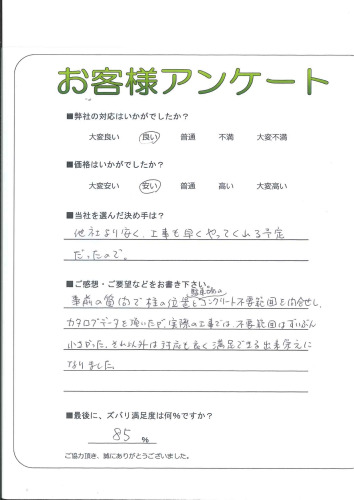 お客様アンケート
■弊社の対応はいかがでしたか?
大変良い 良い 普通 不満 大変不満
■価格はいかがでしたか?
大変安い 安い 普通 高い 大変高い
■当社を選んだ決め手は?
他社より安く、工事も早くやってくれる予定
だったので。
■ご感想・ご要望などをお書き下さい。
事前の質問で柱の位置とコンクリート不要範囲を問合せし、
カタログデータを頂いたが、実際の工事では、不要範囲はずいぶん
小さかった。それ以外は対応も良く満足できる出来栄えに
なりました。
■最後に、ズバリ満足度は何%ですか?
85 %
ご協力頂き、誠にありがとうございました。